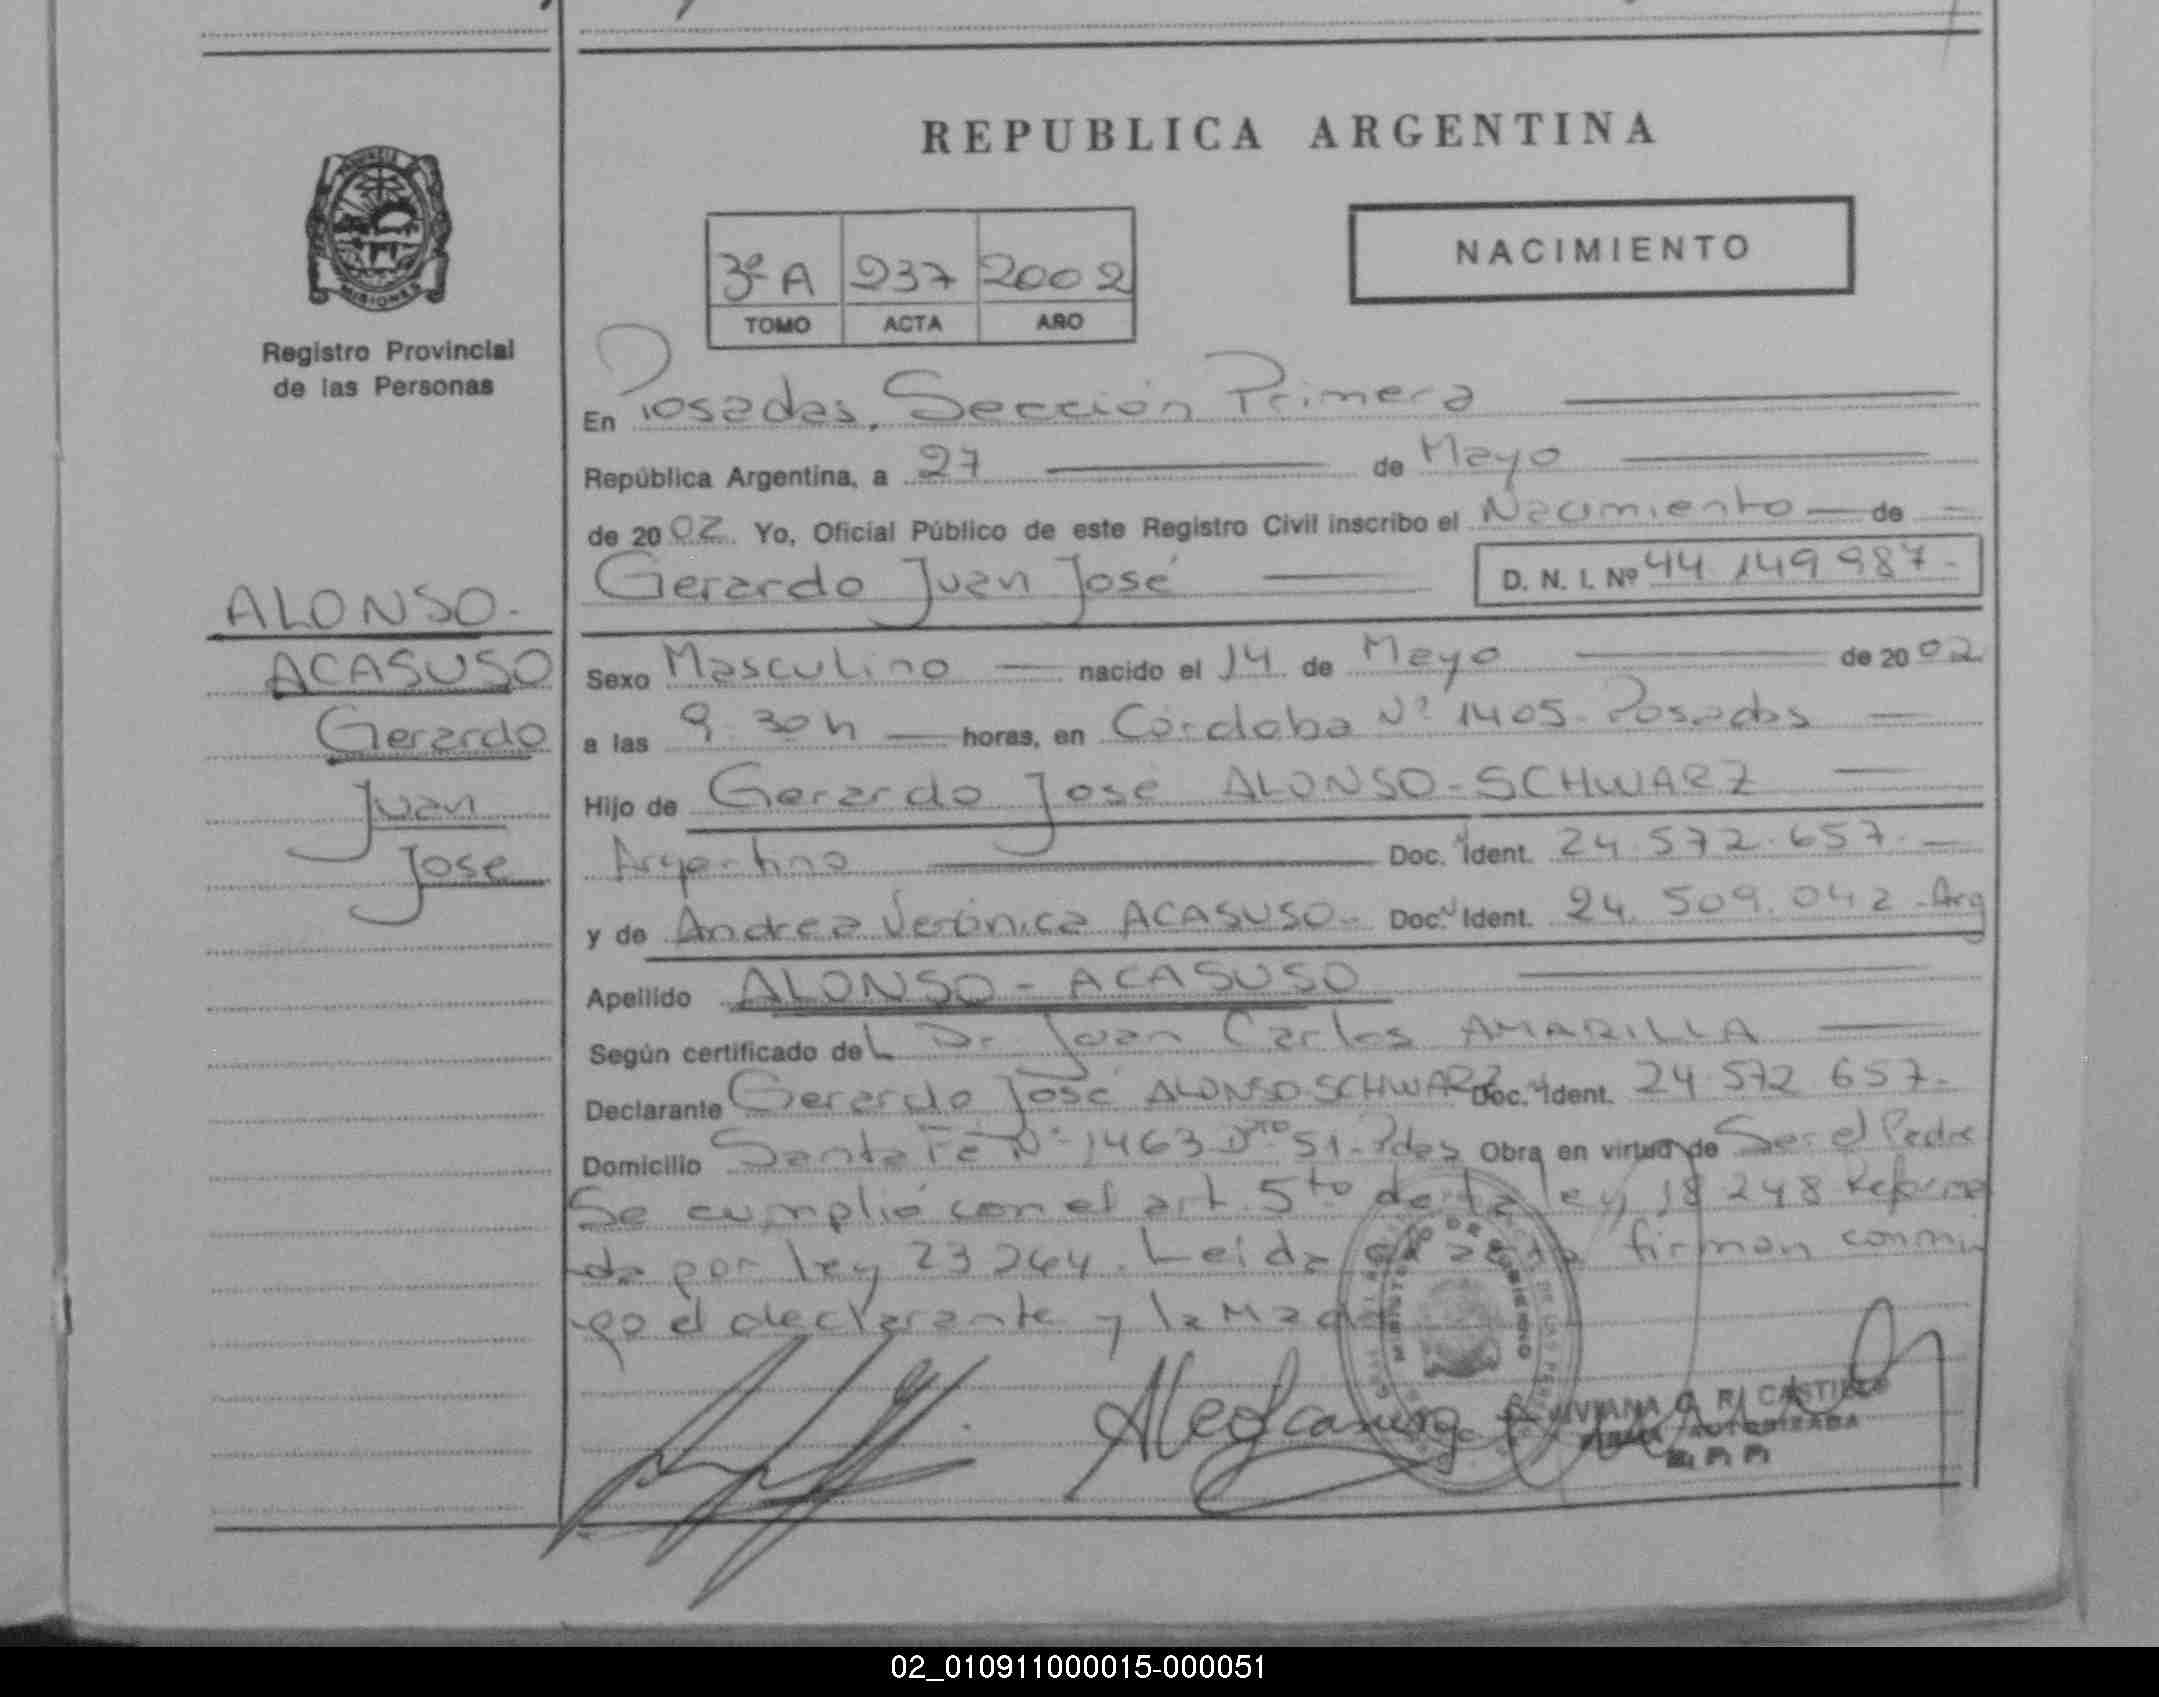 REPUBLICA ARGENTINA
NACIMIENTO
3º A 237 2002
TOMO ACTA AÑO
MISIONES
Registro Provincial
de las Personas
ALONSO-
ACASUSO
Gerardo
Juan
José
En Posadas, Sección Primera
República Argentina, a 27 de Mayo
de 2002. Yo, Oficial Público de este Registro Civil inscribo el Nacimiento de
Gerardo Juan José D. N. I. Nº 44 149 987.-
Sexo Masculino nacido el 14 de Mayo de 2002
a las 9.30h horas, en Córdoba Nº 1405. Posadas
Hijo de Gerardo José ALONSO-SCHWARZ
Argentino Doc. Ident. 24.572.657.-
y de Andrea Verónica ACASUSO- Doc. Ident. 24.509.042-Arg
Apellido ALONSO - ACASUSO
Según certificado del Dr Juan Carlos AMARILLA
Declarante Gerardo José ALONSO SCHWARZ Doc. Ident. 24 572 657-
Domicilio Santa Fé Nº 1463 Dto 51- Pdas Obra en virtud de Ser el Padre
Se cumplió con el art. 5to de la ley 18 248 Reforma
da por ley 23 264. Leida el acta firman conmi
go el declarante y la Madre
MINISTERIO DE GOBIERNO
VIVIANA G. R. CASTILLO
FIRMA AUTORIZADA
02_010911000015-000051